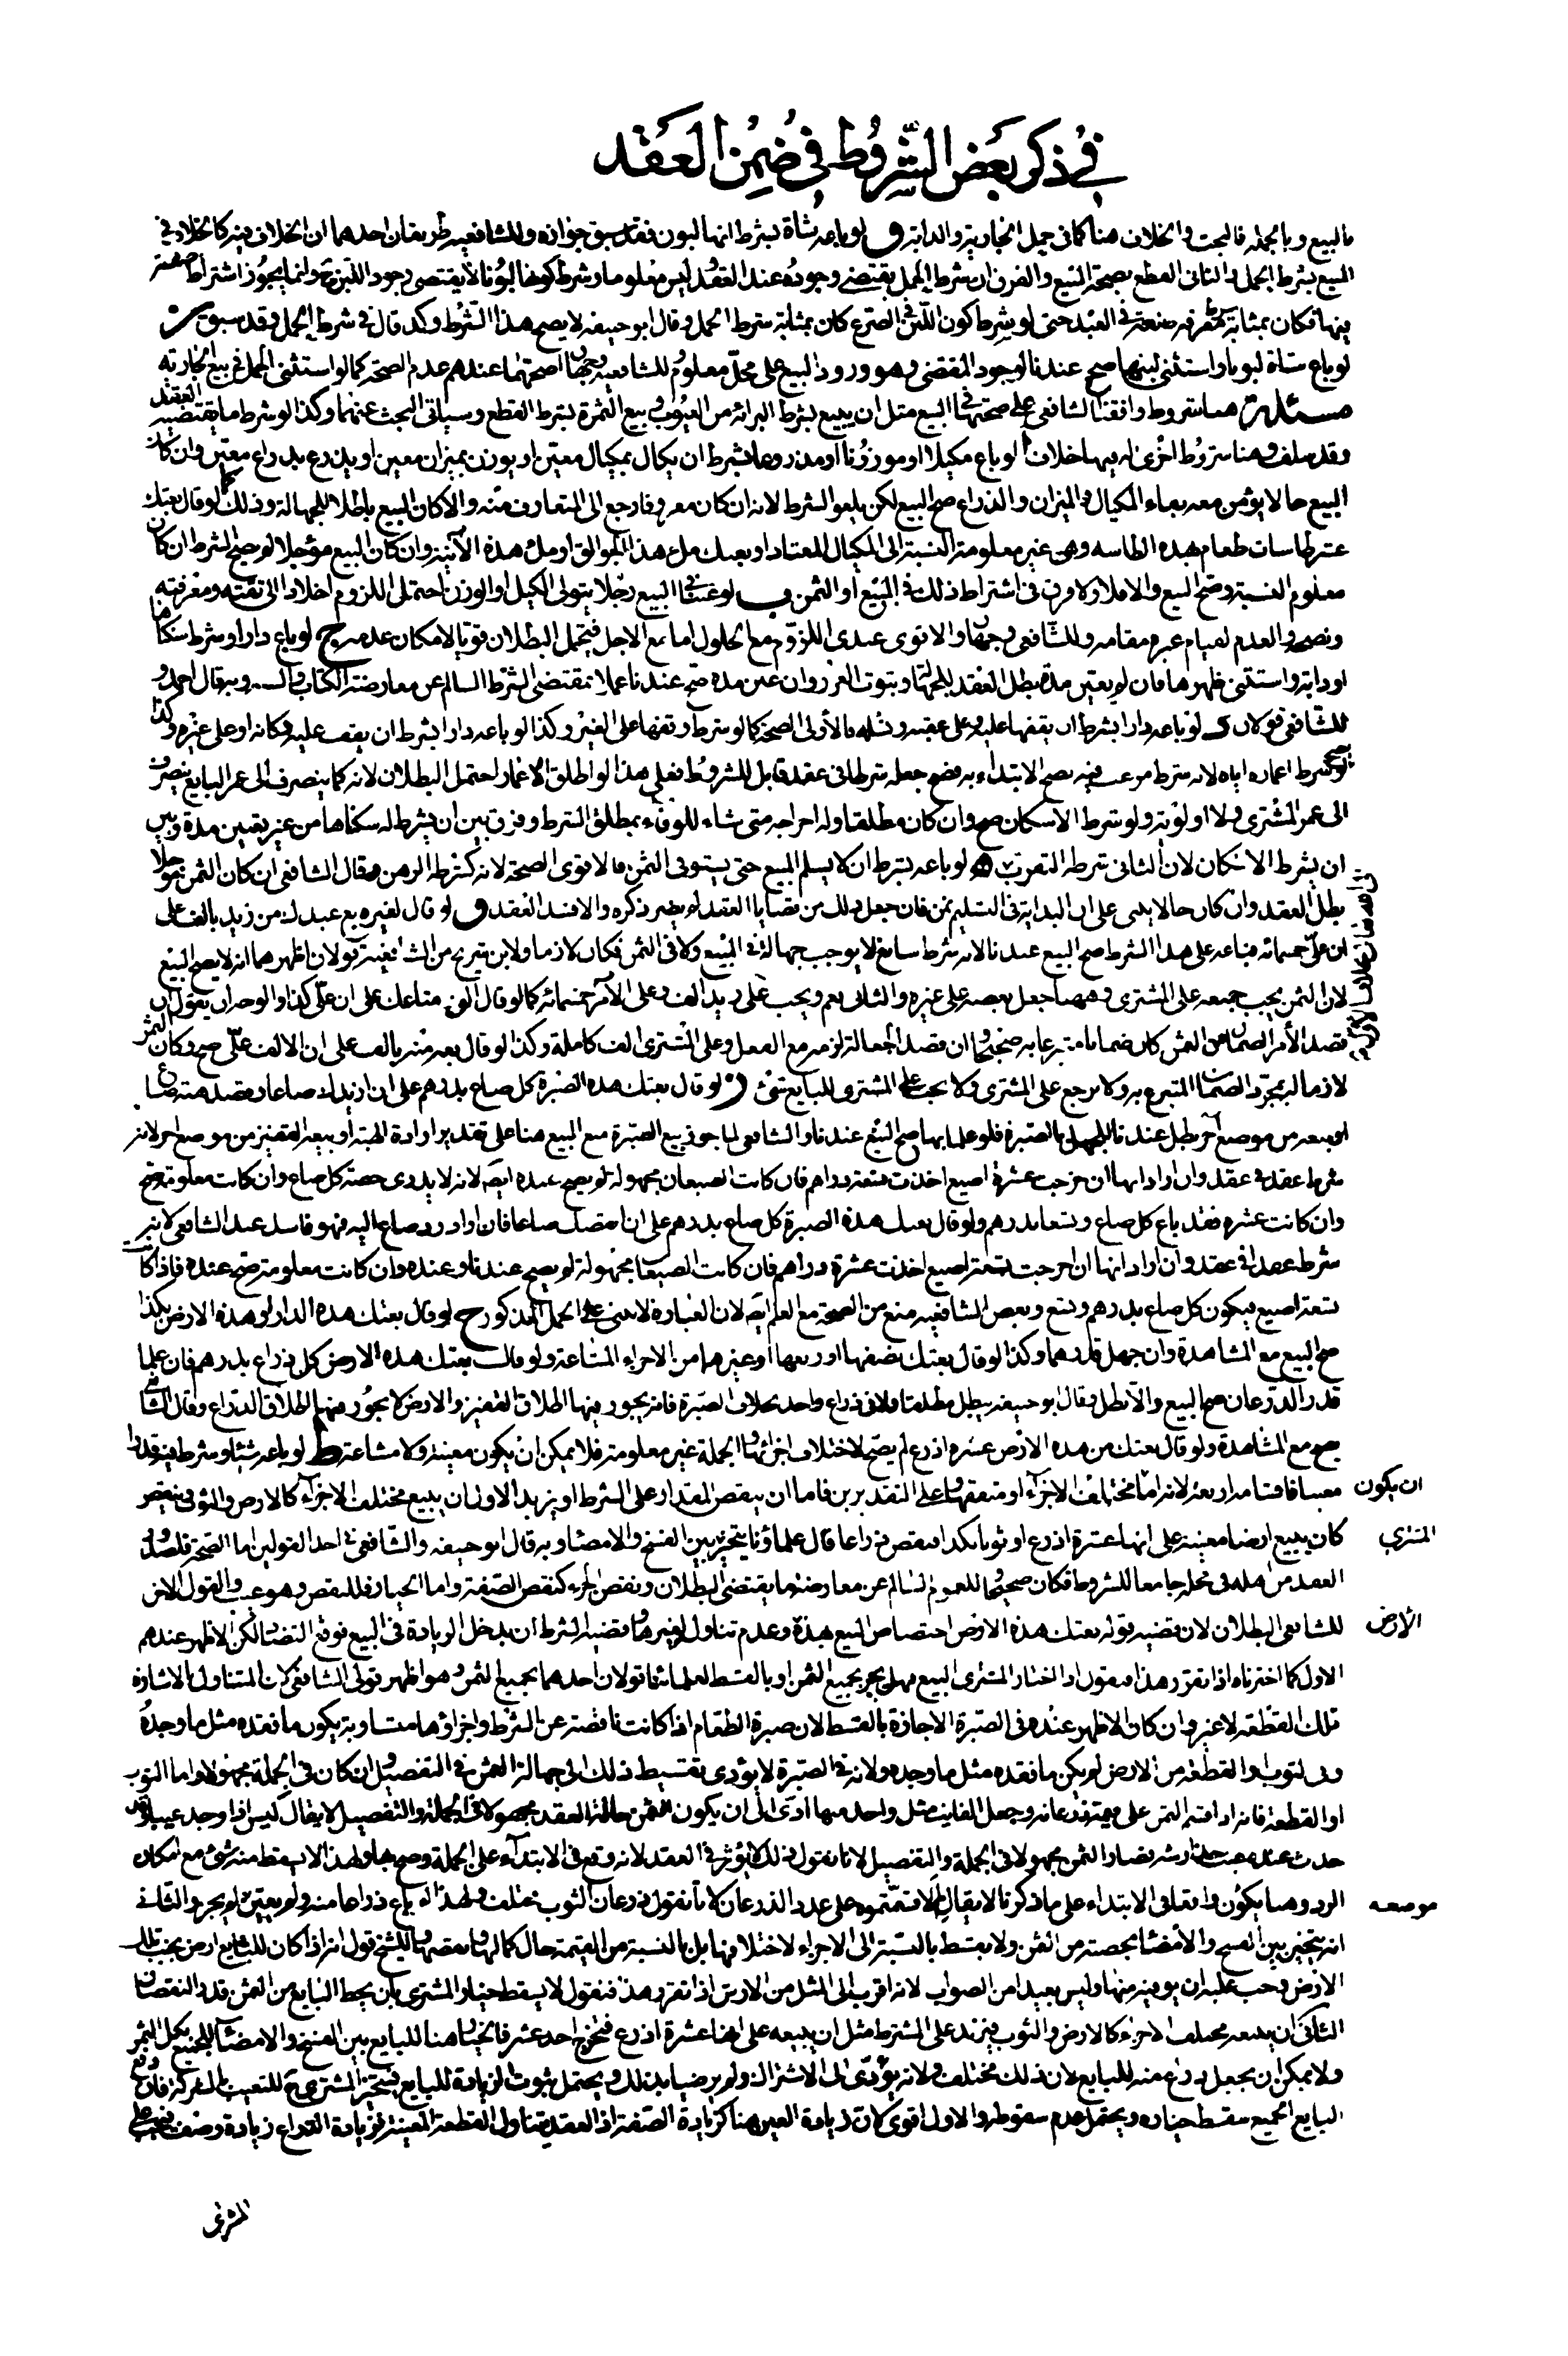 في ذكر بعض الشروط في ضمن العقد
بالبيع وبالجملة فالبحث والخلاف هنا كما في حمل الجارية والدابة و لو باعه شاة بشرط انها لبون فقد سبق جوازه وللشافعية طريقان احدهما ان الخلاف فيه كالخلاف في
البيع بشرط الحمل والثاني القطع بصحة البيع والفرق ان شرط الحمل يقتضي وجوده عند العقد وليس معلوما وشرط كونها لبونا لا يقتضي وجود اللبن ح وانما يجوز اشتراط صفة
فيها فكان بمثابة شرط معرفة صنعة في العبد حتى لو شرط كون اللبن في الضرع كان بمثابة شرط الحمل وقال ابو حنيفه لا يصح هذا الشرط وكذا قال في شرط الحمل وقد سبق
لو باع شاة لبونا واستثنى لبنها صح عندنا لوجود المقتضي وهو ورود البيع على محل معلوم للشافعية وجهان اصحهما عندهم عدم الصحة كما لو استثنى الحمل في بيع الجارية
مسئلة هنا شروط وافقنا الشافعي على صحتها في البيع مثل ان يبيع بشرط البرائة من العيوب وفي بيع الثمرة بشرط القطع وسياتي البحث عنهما وكذا لو شرط ما يقتضيه العقد
وقد سلف وهنا شروط اخرى فيها خلاف ا لو باع مكيلا او موزونا او مذروعا بشرط ان يكال بمكيال معين او يوزن بميزان معين او يذرع بذراع معين وان كان
البيع حالا يؤمن معه بقاء المكيال والميزان والذراع صح البيع لكن يلغو الشرط لانه ان كان معروفا رجع الى المتعارف منه والا كان البيع باطلا للجهالة وذلك كما لو قال بعتك
عشر طاسات طعام بهذه الطاسه وهي غير معلومة النسبة الى المكيال المعتاد او بعتك ملء هذا الجوالق او ملء هذه الآنية وان كان البيع مؤجلا لم يصح الشرط ان كان
معلوم النسبة وصح البيع والا فلا ولا فرق في اشتراط ذلك في المبيع او الثمن ب لو عينا في البيع رجلا يتولى الكيل او الوزن احتمل اللزوم اخلادا الى ثقته ومعرفته
ونصحه والعدم لقيام غيره مقامه وللشافعي وجهان والاقوى عندي اللزوم مع الحلول اما مع الاجل فيحتمل البطلان قويا لامكان عدمه ج لو باع دارا وشرط سكناها
او دابة واستثنى ظهرها فان لم يعين مدة بطل العقد للجهالة وثبوت الغرر وان عين مدة صح عندنا عملا بمقتضى الشرط السالم عن معارضة الكتاب والسنة وبه قال احمد و
للشافعي قولان د لو باعه دارا بشرط ان يقفها عليه وعلى عقبه ونسله فالأولى الصحة كما لو شرط وقفها على الغير وكذا لو باعه دارا بشرط ان يقف عليه دكانه او على غيره وكذا
لو شرط اعماره اياه لانه شرط مرغب فيه يصح الابتداء به فصح جعله شرطا في عقد قابل للشروط فعلى هذا لو اطلق الاعمار احتمل البطلان لانه كما ينصرف الى عمر البايع ينصرف
الى عمر المشتري ولا اولوية ولو شرط الاسكان صح وان كان مطلقا وله اخراجه متى شاء للوفاء بمطلق الشرط وفرق بين ان يشرط له سكناها من غير تعيين مدة وبين
ان يشرط الاسكان لان الثاني شرطه التقرب ه لو باعه بشرط ان لا يسلم المبيع حتى يستوفي الثمن فالاقوى الصحة لانه كشرطه الرهن وقال الشافعي ان كان الثمن مؤجلا
بطل العقد وان كان حالا يبنى على ان البداية في التسليم بمن فان جعل ذلك من قضايا العقد لم يضر ذكره والا فسد العقد و لو قال لغيره بع عبدك من زيد بالف على
ان علي خمسمائة فباعه على هذا الشرط صح البيع عندنا لانه شرط سايغ لا يوجب جهالة في المبيع ولا في الثمن فكان لازما ولابن سريج من الشافعية قولان اظهرهما انه لا يصح البيع
لان الثمن يجب جميعه على المشتري وههنا جعل بعضه على غيره والثاني نعم ويجب على زيد الف وعلى الآمر خمسمائة كما لو قال الق متاعك على ان علي كذا والوجه ان يقول ان
قصد الآمر الضمان من الثمن كان ضمانا متبرعا به صح وان قصد الجعالة لزمه مع الفعل وعلى المشتري الف كاملة وكذا لو قال بعه منه بالف على ان الالف علي صح وكان الثمن
لازما له بمجرد الضمان المتبرع به ولا يرجع على المشتري ولا يجب على المشتري للبايع شئ ز لو قال بعتك هذه الصبرة كل صاع بدرهم على ان ازيدك صاعا وقصد هبة صاع
او بيعه من موضع آخر بطل عندنا للجهل بالصبرة فلو علماها صح البيع عندنا والشافعي لما جوز بيع الصبرة منع البيع هنا على تقدير ارادة الهبة او بيع القفيز من موضع اخر لانه
شرط عقد في عقد وان اراد انها ان خرجت عشرة اصيع اخذت تسعة دراهم فان كانت الصيعان مجهولة لم يصح عنده ايضا لانه لا يدري حصة كل صاع وان كانت معلومة صح
وان كانت عشرة فقد باع كل صاع وتسعا بدرهم ولو قال بعتك هذه الصبرة كل صاع بدرهم على ان انقصك صاعا فان اراد رد صاع اليه فهو فاسد عند الشافعي لانه
شرط عقدا في عقد وان اراد انها ان خرجت تسعة اصيع اخذت عشرة دراهم فان كانت الصيعان مجهولة لم يصح عندنا وعنده وان كانت معلومة صح عنده فاذا كانت
تسعة اصيع فيكون كل صاع بدرهم وتسع وبعض الشافعيه منع من الصحة مع العلم ايضا لان العبارة لا تنبئ على المحمل المذكور ح لو قال بعتك هذه الدار او هذه الارض بكذا
صح البيع مع المشاهدة وان جهل قدرهما وكذا لو قال بعتك نصفها او ربعها او غيرهما من الاجزاء المشاعة ولو قال بعتك هذه الارض كل ذراع بدرهم فان علما
قدر الذرعان صح البيع والا بطل وقال ابو حنيفه يبطل مطلقا ولا في ذراع واحد بخلاف الصبرة فانه يجوز فيها اطلاق القفيز والارض لا يجوز فيها اطلاق الذراع وقال الشافعي
يصح مع المشاهدة ولو قال بعتك من هذه الارض عشرة اذرع لم يصح لاختلاف اجزائها والجملة غير معلومة فلا يمكن ان يكون معينة ولا مشاعة ط لو باعه شيئا وشرط فيه قدرا
معينا فاقسامه اربعة لانه اما ان يكون مختلف الاجزاء او متفقها وعلى التقديرين فاما ان ينقص المقدار على الشرط او يزيد الاول ان يبيع مختلف الاجزاء كالارض والثوب فينقص
كان يبيع ارضا معينة على انها عشرة اذرع او ثوبا كذا فنقص ذراعا قال علماؤنا يتخير المشتري بين الفسخ والامضاء وبه قال ابو حنيفه والشافعي في احد القولين اما الصحة فلصدور
العقد من اهله في محله جامعا للشروط فكان صحيحا للعموم السالم عن معارضة ما يقتضي البطلان ونقص الجزء كنقص الصفة واما الخيار فللنقص وهو عيب والقول الاخر
للشافعي البطلان لان قضية قوله بعتك هذه الارض اختصاص البيع بهذه الارض وعدم تناوله لغيرها وقضية الشرط ان يدخل الزيادة في البيع فوقع التضاد لكن الاظهر عندهم
الاول كما اخترناه اذا تقرر هذا فنقول اذا اختار المشتري البيع فهل يجيز بجميع الثمن او بالقسط لعلمائنا قولان احدهما بجميع الثمن وهو اظهر قولي الشافعي لان المتناول بالاشارة
تلك القطعة لا غير وان كان الاظهر عنده في الصبرة الاجازة بالقسط لان صبرة الطعام اذا كانت ناقصة عن الشرط واجزاؤها متساوية يكون ما فقده مثل ما وجده
وفي الثوب والقطعة من الارض لم يكن ما فقده مثل ما وجده ولانه في الصبرة لا يؤدي تقسيط ذلك الى جهالة الثمن في التفصيل وان كان في الجملة مجهولا واما الثوب
او القطعة فانه اذا قسم الثمن على قيمة ذرعانه وجعل الفايت مثل واحد منها ادى الى ان يكون الثمن حالة العقد مجهولا في الجملة والتفصيل لا يقال اليس اذا وجد عيبا وقد
حدث عنده عيب اخذ ارشه فصار الثمن مجهولا في الجملة والتفصيل لانا نقول ذلك لا يؤثر في العقد لانه وقع في الابتداء على الجملة وصح بها ولهذا لا يسقط منه شئ مع امكان
الرد وهنا يكون واقعا في الابتداء على ما ذكرنا لا يقال الا قسمتموه على عدد الذرعان لانا نقول ذرعان الثوب تختلف ولهذا لو باع ذراعا منه ولم يعين موضعه لم يجز والثاني
انه يتخير بين الفسخ والامضاء بحصته من الثمن ولا يقسط بالنسبة الى الاجزاء لاختلافها بل بالنسبة من القيمة حال كمالها ونقصها وللشيخ قول انه اذا كان للبايع ارض بجنب تلك
الارض وجب عليه ان يوفيه منها وليس بعيدا من الصواب لانه اقرب الى المثل من الارش اذا تقرر هذا فنقول لا يسقط خيار المشتري بان يحط البايع من الثمن قدر النقصان
الثاني ان يبيعه مختلف الاجزاء كالارض والثوب فيزيد على الشرط مثل ان يبيعه على انها عشرة اذرع فتخرج احد عشر فالخيار هنا للبايع بين الفسخ والامضاء للجميع بكل الثمن
ولا يمكن ان يجعل ذراع منه للبايع لان ذلك مختلف ولانه يؤدي الى الاشتراك ولم يرضيا بذلك ويحتمل ثبوت الزيادة للبايع فيتخير المشتري ح للتعيب بالشركة فان دفع
البايع الجميع سقط خياره ويحتمل عدم سقوطه والاول اقوى لان زيادة العين هنا كزيادة الصفة اذ العقد يتناول القطعة المعينة فزيادة الذراع زيادة وصف فيجب على
المشتري